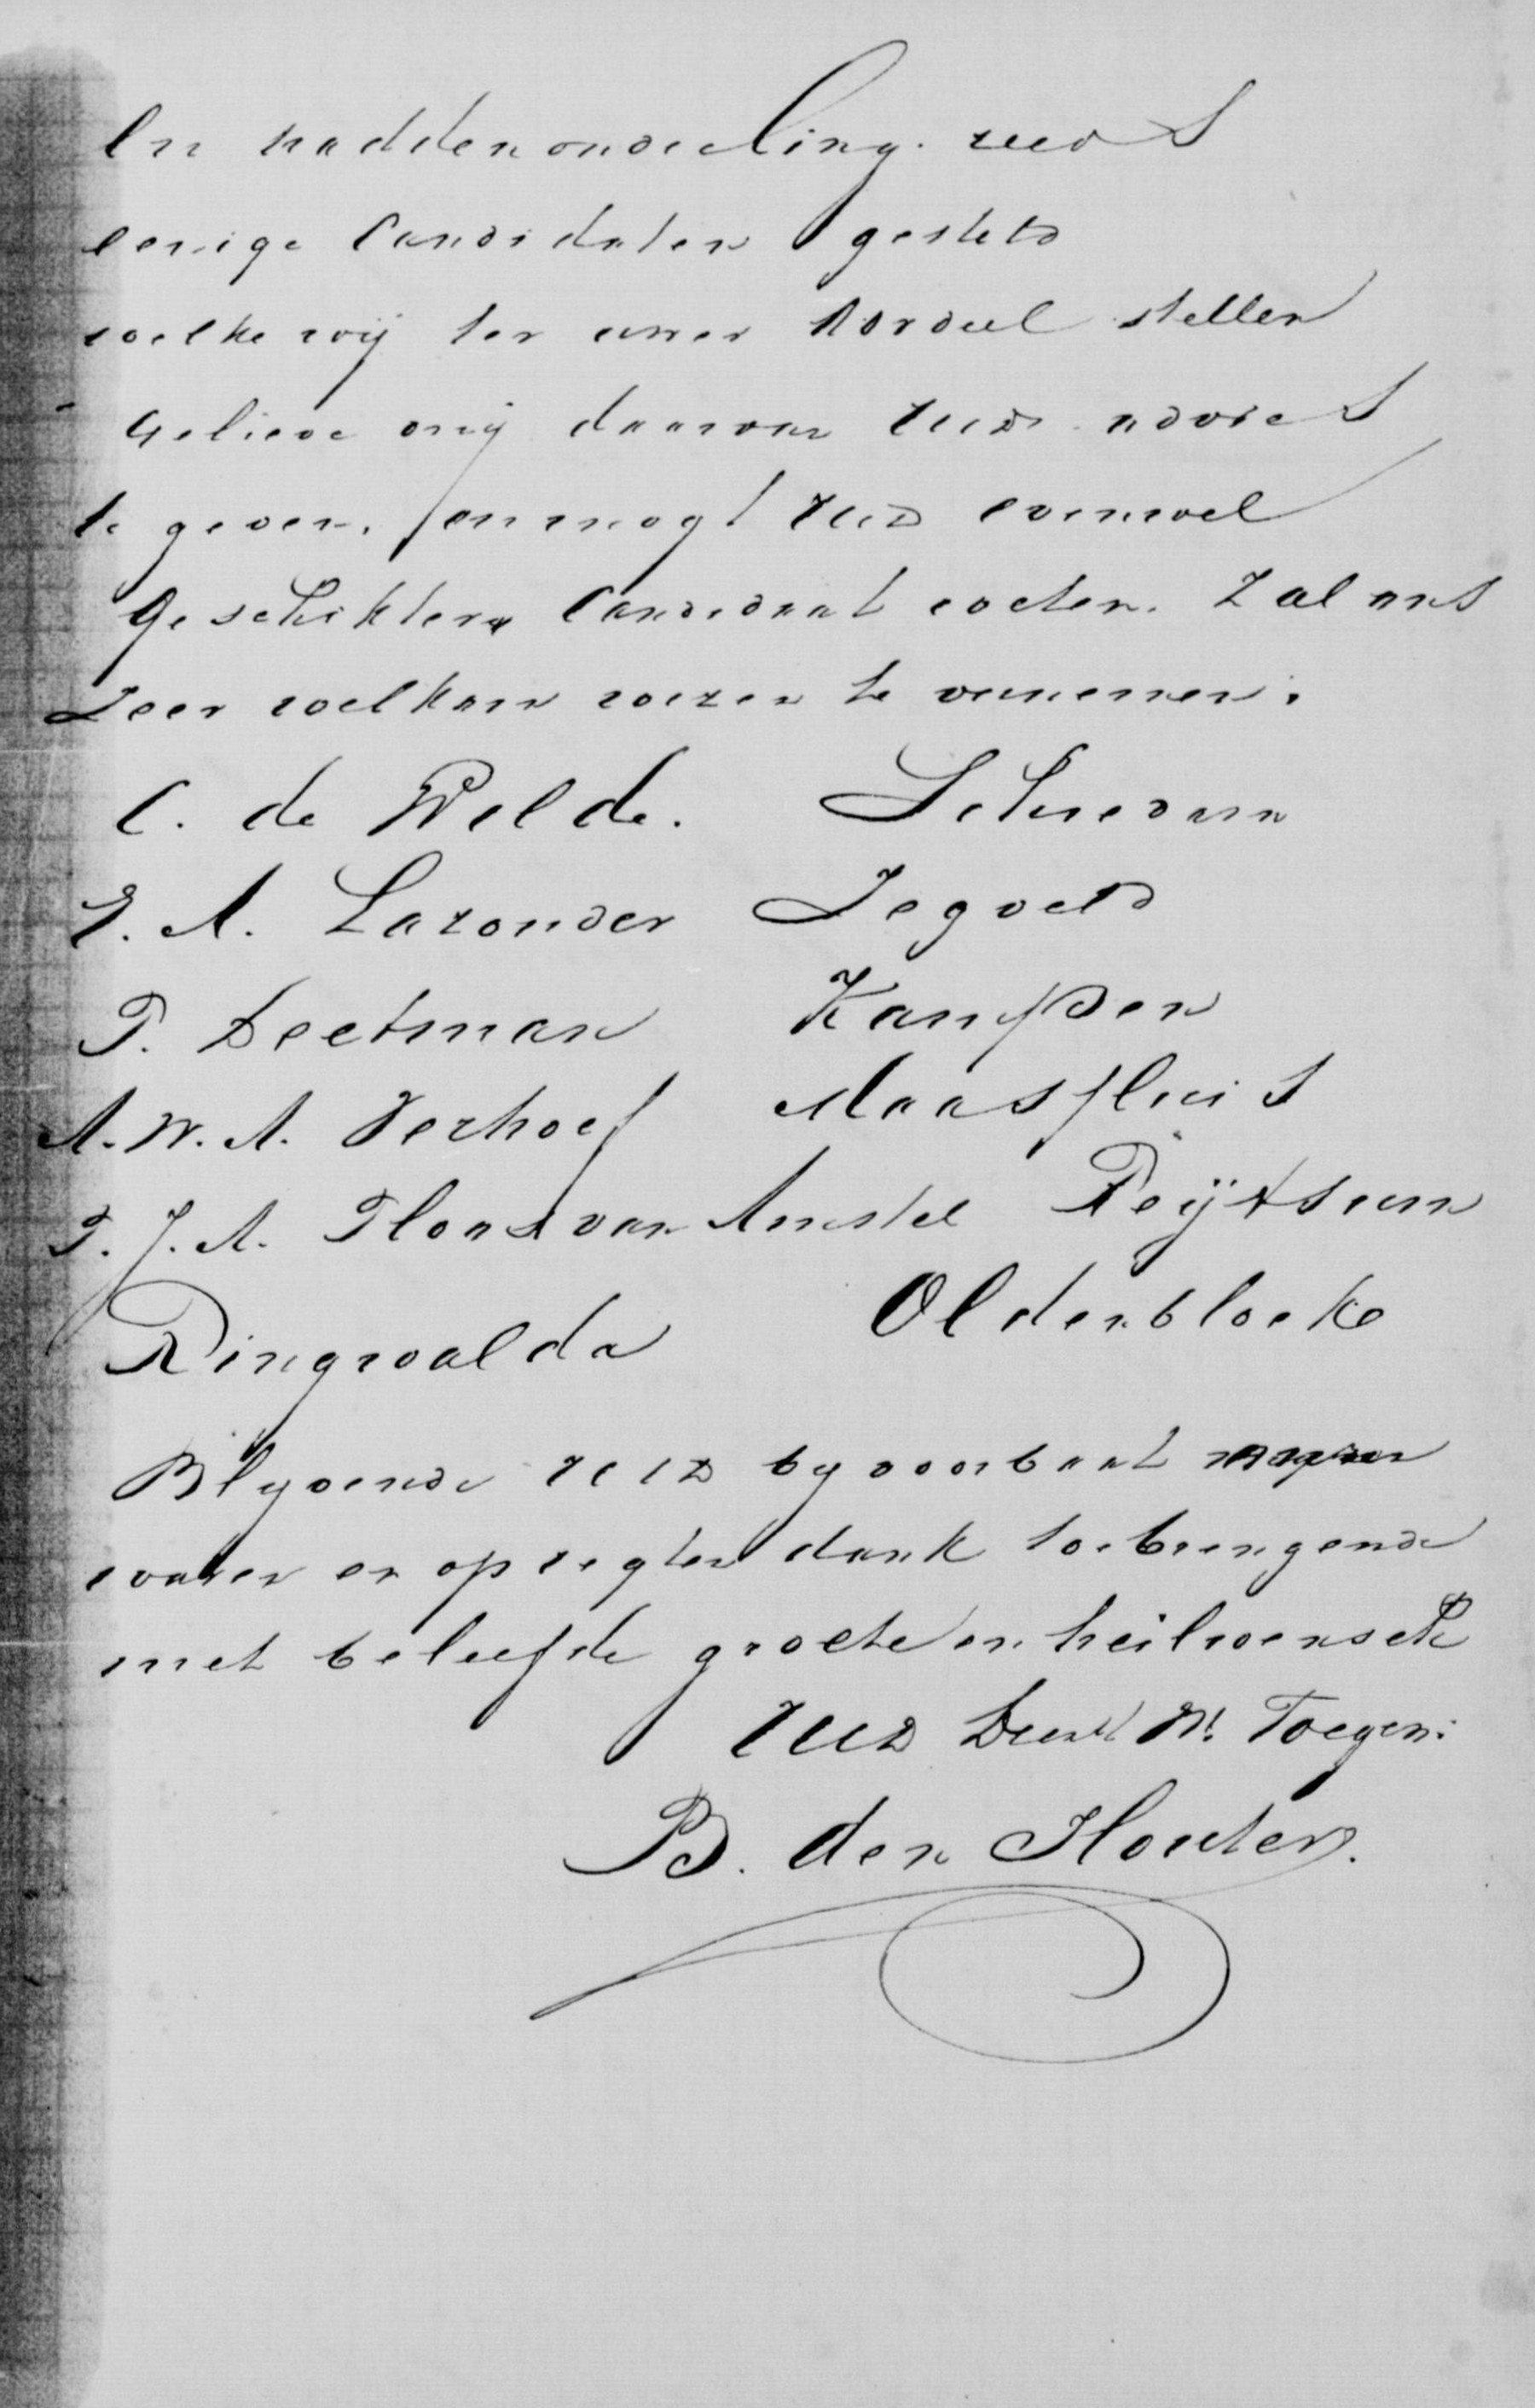 En hadden onderling reeds
eenige Candidaten gesteld
welke wij ter uwer oordeel stellen
Gelieve mij daarvan UEd advies
te geven. en mogt UEd evenwel
Geschiktere Candidaat weten. Zal ons
Zeer welkom wezen te vernemen.
C. de Wilde. Schiedam
E. A. Lazonder Zegveld
P. Deetman Kampen
A. W. A. Verhoef Maassluis
P. J. A. Ploos van Amstel Reijtsum
Ringnalda Oldenbloeke
Blyvende UEd by voorbaat
waren en opregten dank toebrengende
met beleefde groete en heilwensch
UEd Dienstw. Toegen:
B. den Houter.